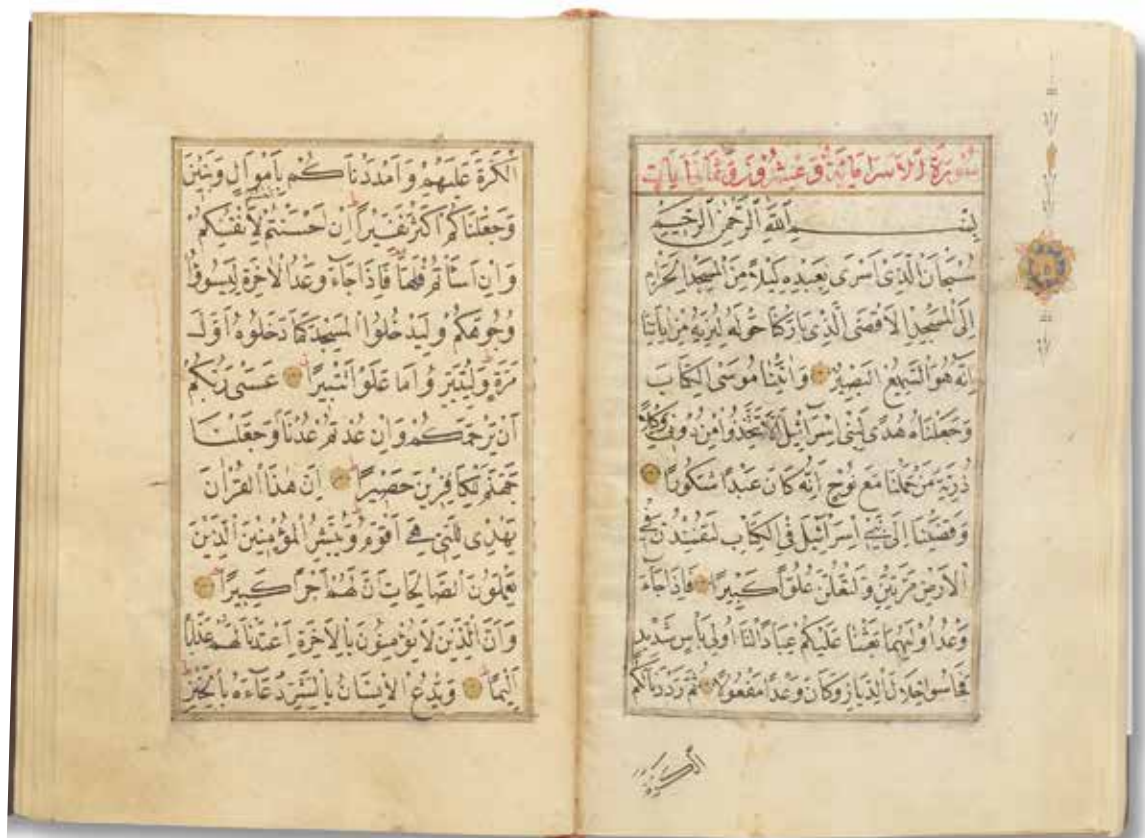 سُورَةُ الْاَسْرٰى مِائَةٌ وَعِشْرُونَ وَثَمَانُ اٰيَاتٍ
بِسْمِ اللّٰهِ الرَّحْمٰنِ الرَّحِيمِ
سُبْحَانَ الَّذِى اَسْرٰى بِعَبْدِهِ لَيْلًا مِنَ الْمَسْجِدِ الْحَرَامِ
اِلَى الْمَسْجِدِ الْاَقْصَى الَّذِى بَارَكْنَا حَوْلَهُ لِنُرِيَهُ مِنْ اٰيَاتِنَا
اِنَّهُ هُوَ السَّمِيعُ الْبَصِيرُ وَاٰتَيْنَا مُوسَى الْكِتَابَ
وَجَعَلْنَاهُ هُدًى لِبَنِى اِسْرَائِيلَ اَلَّا تَتَّخِذُوا مِنْ دُونِى وَكِيلًا
ذُرِّيَّةَ مَنْ حَمَلْنَا مَعَ نُوحٍ اِنَّهُ كَانَ عَبْدًا شَكُورًا
وَقَضَيْنَا اِلٰى بَنِى اِسْرَائِيلَ فِى الْكِتَابِ لَتُفْسِدُنَّ فِى
الْاَرْضِ مَرَّتَيْنِ وَلَتَعْلُنَّ عُلُوًّا كَبِيرًا فَاِذَا جَاءَ
وَعْدُ اُولٰيهُمَا بَعَثْنَا عَلَيْكُمْ عِبَادًا لَنَا اُولِى بَأْسٍ شَدِيدٍ
فَجَاسُوا خِلَالَ الدِّيَارِ وَكَانَ وَعْدًا مَفْعُولًا ثُمَّ رَدَدْنَا لَكُمُ
الْكَرَّةَ
الْكَرَّةَ عَلَيْهِمْ وَاَمْدَدْنَاكُمْ بِاَمْوَالٍ وَبَنِينَ
وَجَعَلْنَاكُمْ اَكْثَرَ نَفِيرًا اِنْ اَحْسَنْتُمْ لِاَنْفُسِكُمْ
وَاِنْ اَسَأْتُمْ فَلَهَا فَاِذَا جَاءَ وَعْدُ الْاٰخِرَةِ لِيَسُوؤُا
وُجُوهَكُمْ وَلِيَدْخُلُوا الْمَسْجِدَ كَمَا دَخَلُوهُ اَوَّلَ
مَرَّةٍ وَلِيُتَبِّرُوا مَا عَلَوْا تَتْبِيرًا عَسٰى رَبُّكُمْ
اَنْ يَرْحَمَكُمْ وَاِنْ عُدْتُمْ عُدْنَا وَجَعَلْنَا
جَهَنَّمَ لِلْكَافِرِينَ حَصِيرًا اِنَّ هٰذَا الْقُرْاٰنَ
يَهْدِى لِلَّتِى هِىَ اَقْوَمُ وَيُبَشِّرُ الْمُؤْمِنِينَ الَّذِينَ
يَعْمَلُونَ الصَّالِحَاتِ اَنَّ لَهُمْ اَجْرًا كَبِيرًا
وَاَنَّ الَّذِينَ لَا يُؤْمِنُونَ بِالْاٰخِرَةِ اَعْتَدْنَا لَهُمْ عَذَابًا
اَلِيمًا وَيَدْعُ الْاِنْسَانُ بِالشَّرِّ دُعَاءَهُ بِالْخَيْرِ